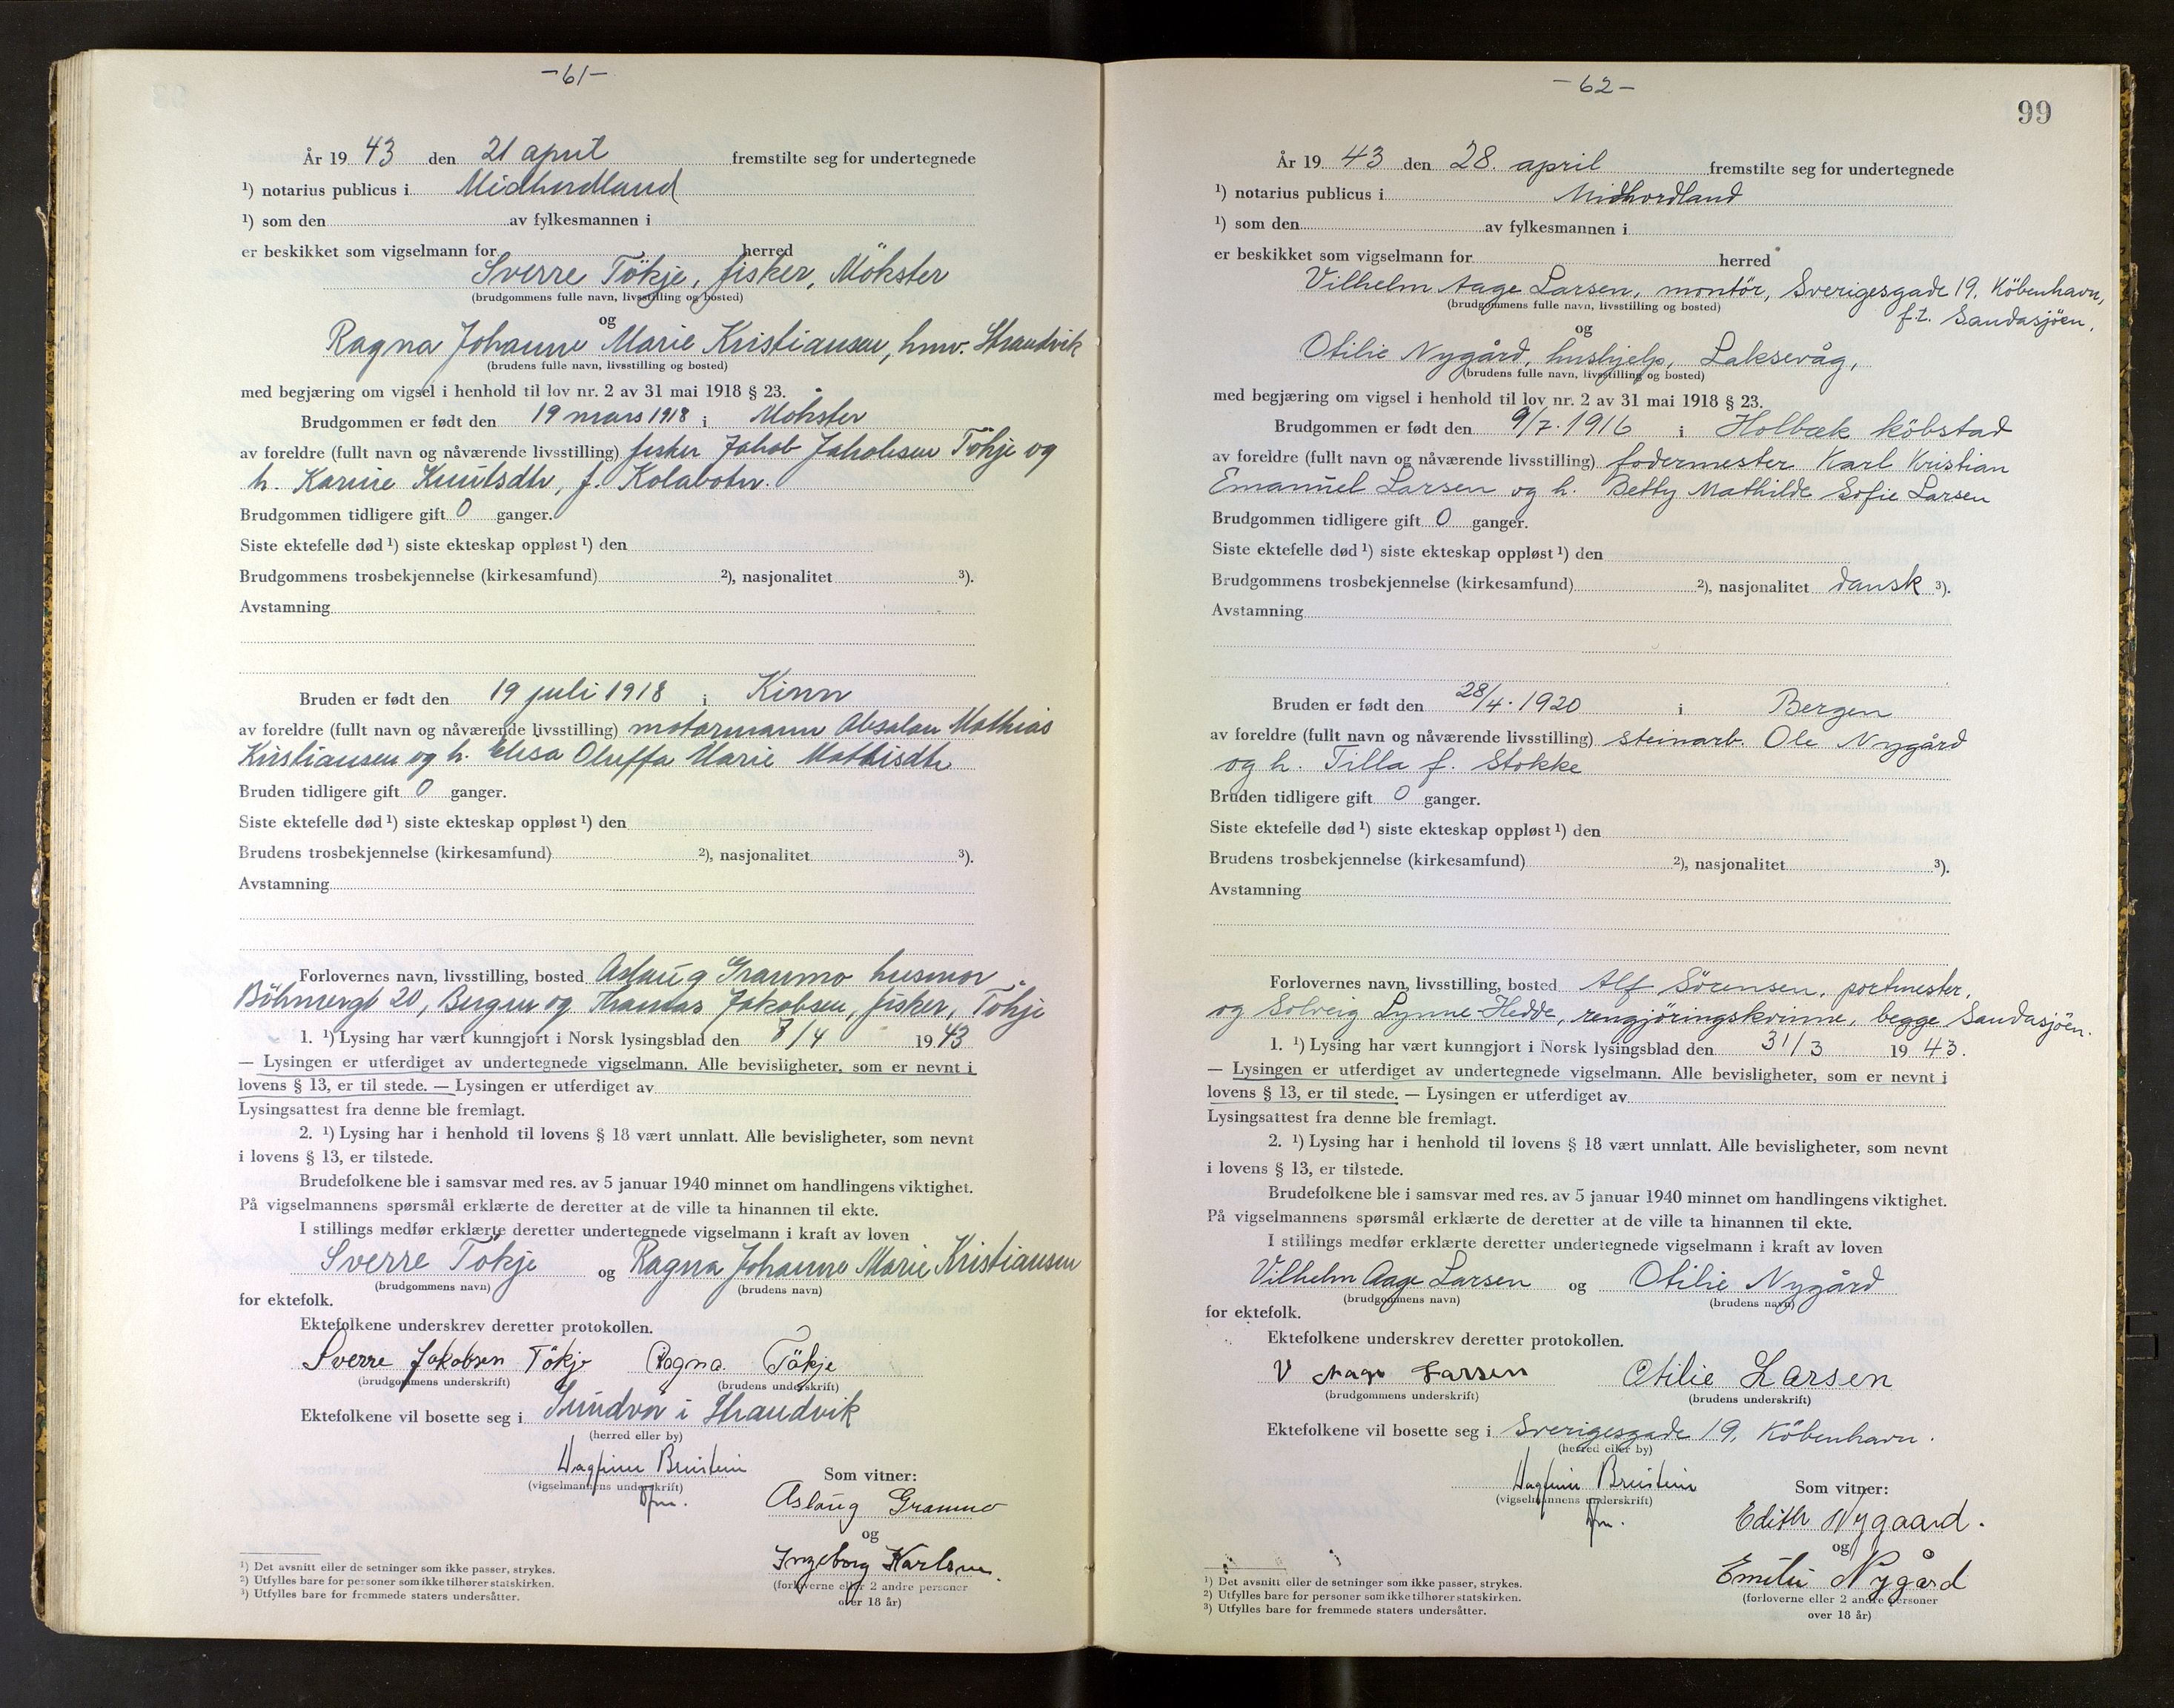 -61-
År 19 43 den 21 april fremstilte seg for undertegnede
¹) notarius publicus i Midhordland
¹) som den av fylkesmannen i
er beskikket som vigselmann for herred
Sverre Tökje, fisker, Mökster
(brudgommens fulle navn, livsstilling og bosted)
og
Ragna Johanne Marie Kristiansen, hmv. Strandvik
(brudens fulle navn, livsstilling og bosted)
med begjæring om vigsel i henhold til lov nr. 2 av 31 mai 1918 § 23.
Brudgommen er født den 19 mars 1918 i Mökster
av foreldre (fullt navn og nåværende livsstilling) fisker Jakob Jakobsen Tökje og
h. Karine Knutsdtr, f. Kolabotn.
Brudgommen tidligere gift 0 ganger.
Siste ektefelle død ¹) siste ekteskap oppløst ¹) den
Brudgommens trosbekjennelse (kirkesamfund) ²), nasjonalitet ³).
Avstamning
Bruden er født den 19 juli 1918 i Kinn
av foreldre (fullt navn og nåværende livsstilling) motormann Absalon Mathias
Kristiansen og h. Elisa Oluffa Marie Mathisdtr
Bruden tidligere gift 0 ganger.
Siste ektefelle død ¹) siste ekteskap oppløst ¹) den
Brudens trosbekjennelse (kirkesamfund) ²), nasjonalitet ³).
Avstamning
Forlovernes navn, livsstilling, bosted Aslaug Gramno husmor
Böhmergt 20, Bergen og Thomas Jakobsen, fisker, Tökje
1. ¹) Lysing har vært kunngjort i Norsk lysingsblad den 7/4 19 43
— Lysingen er utferdiget av undertegnede vigselmann. Alle bevisligheter, som er nevnt i
lovens § 13, er til stede. — Lysingen er utferdiget av
Lysingsattest fra denne ble fremlagt.
2. ¹) Lysing har i henhold til lovens § 18 vært unnlatt. Alle bevisligheter, som nevnt
i lovens § 13, er tilstede.
Brudefolkene ble i samsvar med res. av 5 januar 1940 minnet om handlingens viktighet.
På vigselmannens spørsmål erklærte de deretter at de ville ta hinannen til ekte.
I stillings medfør erklærte deretter undertegnede vigselmann i kraft av loven
Sverre Tökje og Ragna Johanne Marie Kristiansen
(brudgommens navn) (brudens navn)
for ektefolk.
Ektefolkene underskrev deretter protokollen.
Sverre Jakobsen Tökje Ragna Tökje
(brudgommens underskrift) (brudens underskrift)
Ektefolkene vil bosette seg i Sundvor i Strandvik
(herred eller by)
Dagfinn Breistein
(vigselmannens underskrift)
dfm.
Som vitner:
Aslaug Gramno
og
Ingeborg Karlsen.
(forloverne eller 2 andre personer
over 18 år)
¹) Det avsnitt eller de setninger som ikke passer, strykes.
²) Utfylles bare for personer som ikke tilhører statskirken.
³) Utfylles bare for fremmede staters undersåtter.
-62-
99
År 19 43 den 28. april fremstilte seg for undertegnede
¹) notarius publicus i Midhordland
¹) som den av fylkesmannen i
er beskikket som vigselmann for herred
Vilhelm Aage Larsen, montör, Sverigesgade 19, Köbenhavn,
(brudgommens fulle navn, livsstilling og bosted)
f.t. Sandasjöen,
og
Otilie Nygård, hushjelp, Laksevåg,
(brudens fulle navn, livsstilling og bosted)
med begjæring om vigsel i henhold til lov nr. 2 av 31 mai 1918 § 23.
Brudgommen er født den 9/7. 1916 i Holbæk köbstad
av foreldre (fullt navn og nåværende livsstilling) fodermester Karl Kristian
Emanuel Larsen og h. Betty Mathilde Sofie Larsen
Brudgommen tidligere gift 0 ganger.
Siste ektefelle død ¹) siste ekteskap oppløst ¹) den
Brudgommens trosbekjennelse (kirkesamfund) ²), nasjonalitet dansk ³).
Avstamning
Bruden er født den 28/4. 1920 i Bergen
av foreldre (fullt navn og nåværende livsstilling) steinarb. Ole Nygård
og h. Tilla f. Stokke
Bruden tidligere gift 0 ganger.
Siste ektefelle død ¹) siste ekteskap oppløst ¹) den
Brudens trosbekjennelse (kirkesamfund) ²), nasjonalitet ³).
Avstamning
Forlovernes navn, livsstilling, bosted Alf Sörensen, portmester,
og Solveig Lynne-Hedde, rengjöringskonne, begge Sandasjöen.
1. ¹) Lysing har vært kunngjort i Norsk lysingsblad den 31/3 19 43.
— Lysingen er utferdiget av undertegnede vigselmann. Alle bevisligheter, som er nevnt i
lovens § 13, er til stede. — Lysingen er utferdiget av
Lysingsattest fra denne ble fremlagt.
2. ¹) Lysing har i henhold til lovens § 18 vært unnlatt. Alle bevisligheter, som nevnt
i lovens § 13, er tilstede.
Brudefolkene ble i samsvar med res. av 5 januar 1940 minnet om handlingens viktighet.
På vigselmannens spørsmål erklærte de deretter at de ville ta hinannen til ekte.
I stillings medfør erklærte deretter undertegnede vigselmann i kraft av loven
Vilhelm Aage Larsen og Otilie Nygård
(brudgommens navn) (brudens navn)
for ektefolk.
Ektefolkene underskrev deretter protokollen.
V Aage Larsen Otilie Larsen
(brudgommens underskrift) (brudens underskrift)
Ektefolkene vil bosette seg i Sverigesgade 19, Köbenhavn.
(herred eller by)
Dagfinn Breistein
(vigselmannens underskrift)
dfm.
Som vitner:
Edith Nygaard.
og
Emilie Nygård
(forloverne eller 2 andre personer
over 18 år)
¹) Det avsnitt eller de setninger som ikke passer, strykes.
²) Utfylles bare for personer som ikke tilhører statskirken.
³) Utfylles bare for fremmede staters undersåtter.